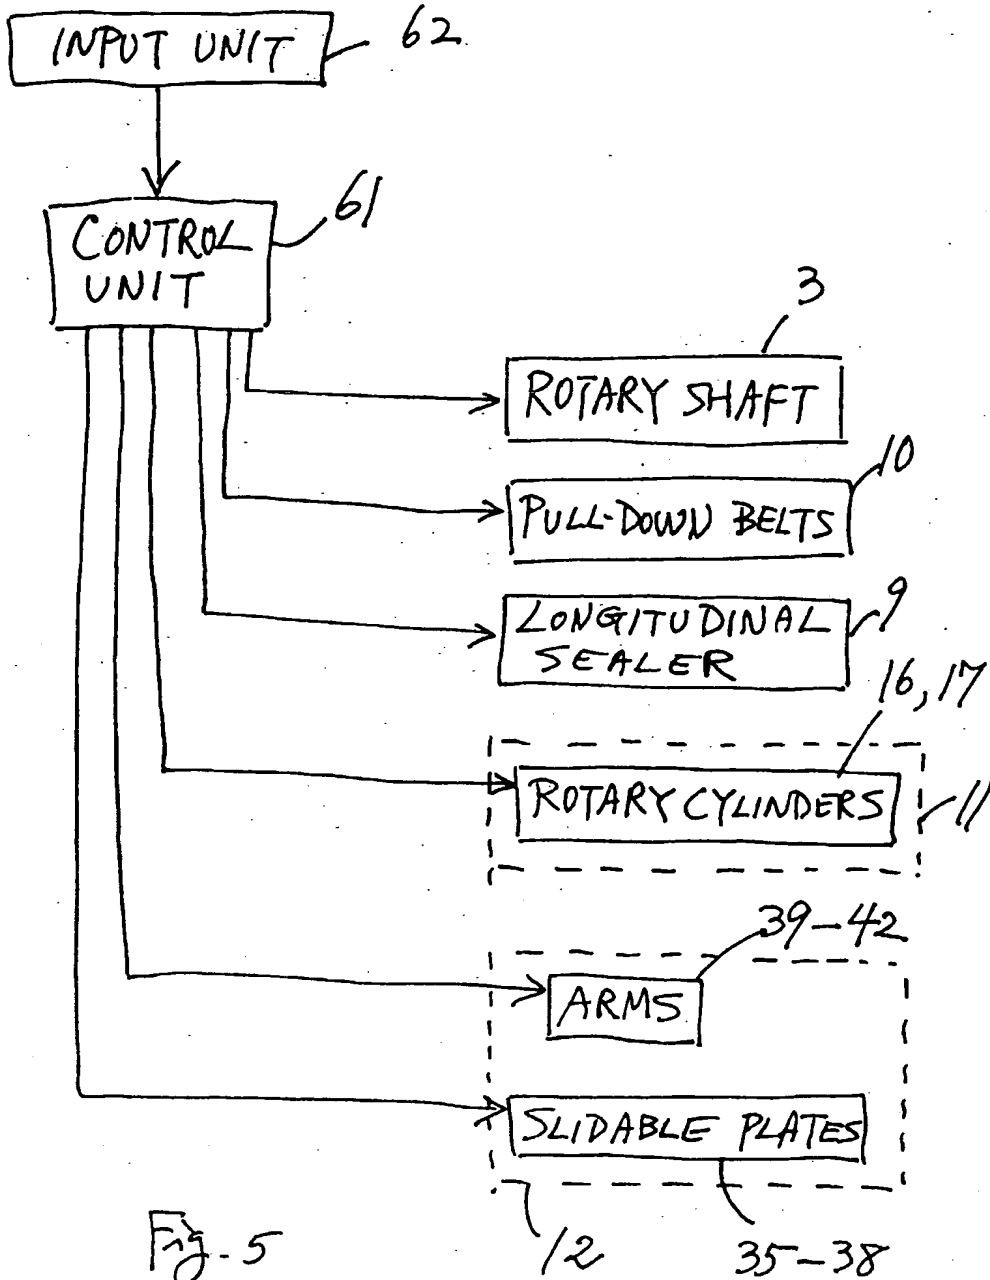 INPUT UNIT
62
CONTROL
UNIT
61
3
ROTARY SHAFT
10
PULL-DOWN BELTS
9
LONGITUDINAL
SEALER
16, 17
ROTARY CYLINDERS
11
39-42
ARMS
SLIDABLE PLATES
12
35-38
Fig. 5